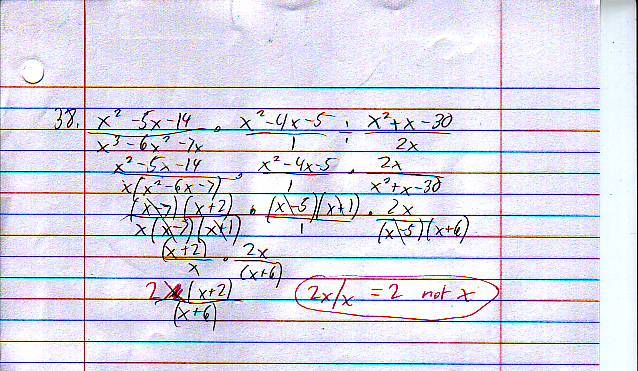 38. (x² - 5x - 14)/(x³ - 6x² - 7x) · (x² - 4x - 5)/1 ÷ (x² + x - 30)/2x
(x² - 5x - 14)/(x(x² - 6x - 7)) · (x² - 4x - 5)/1 · 2x/(x² + x - 30)
((x-7)(x+2))/(x(x-7)(x+1)) · ((x-5)(x+1))/1 · 2x/((x-5)(x+6))
(x+2)/x · 2x/(x+6)
2x(x+2)/(x+6) 2x/x = 2 not x